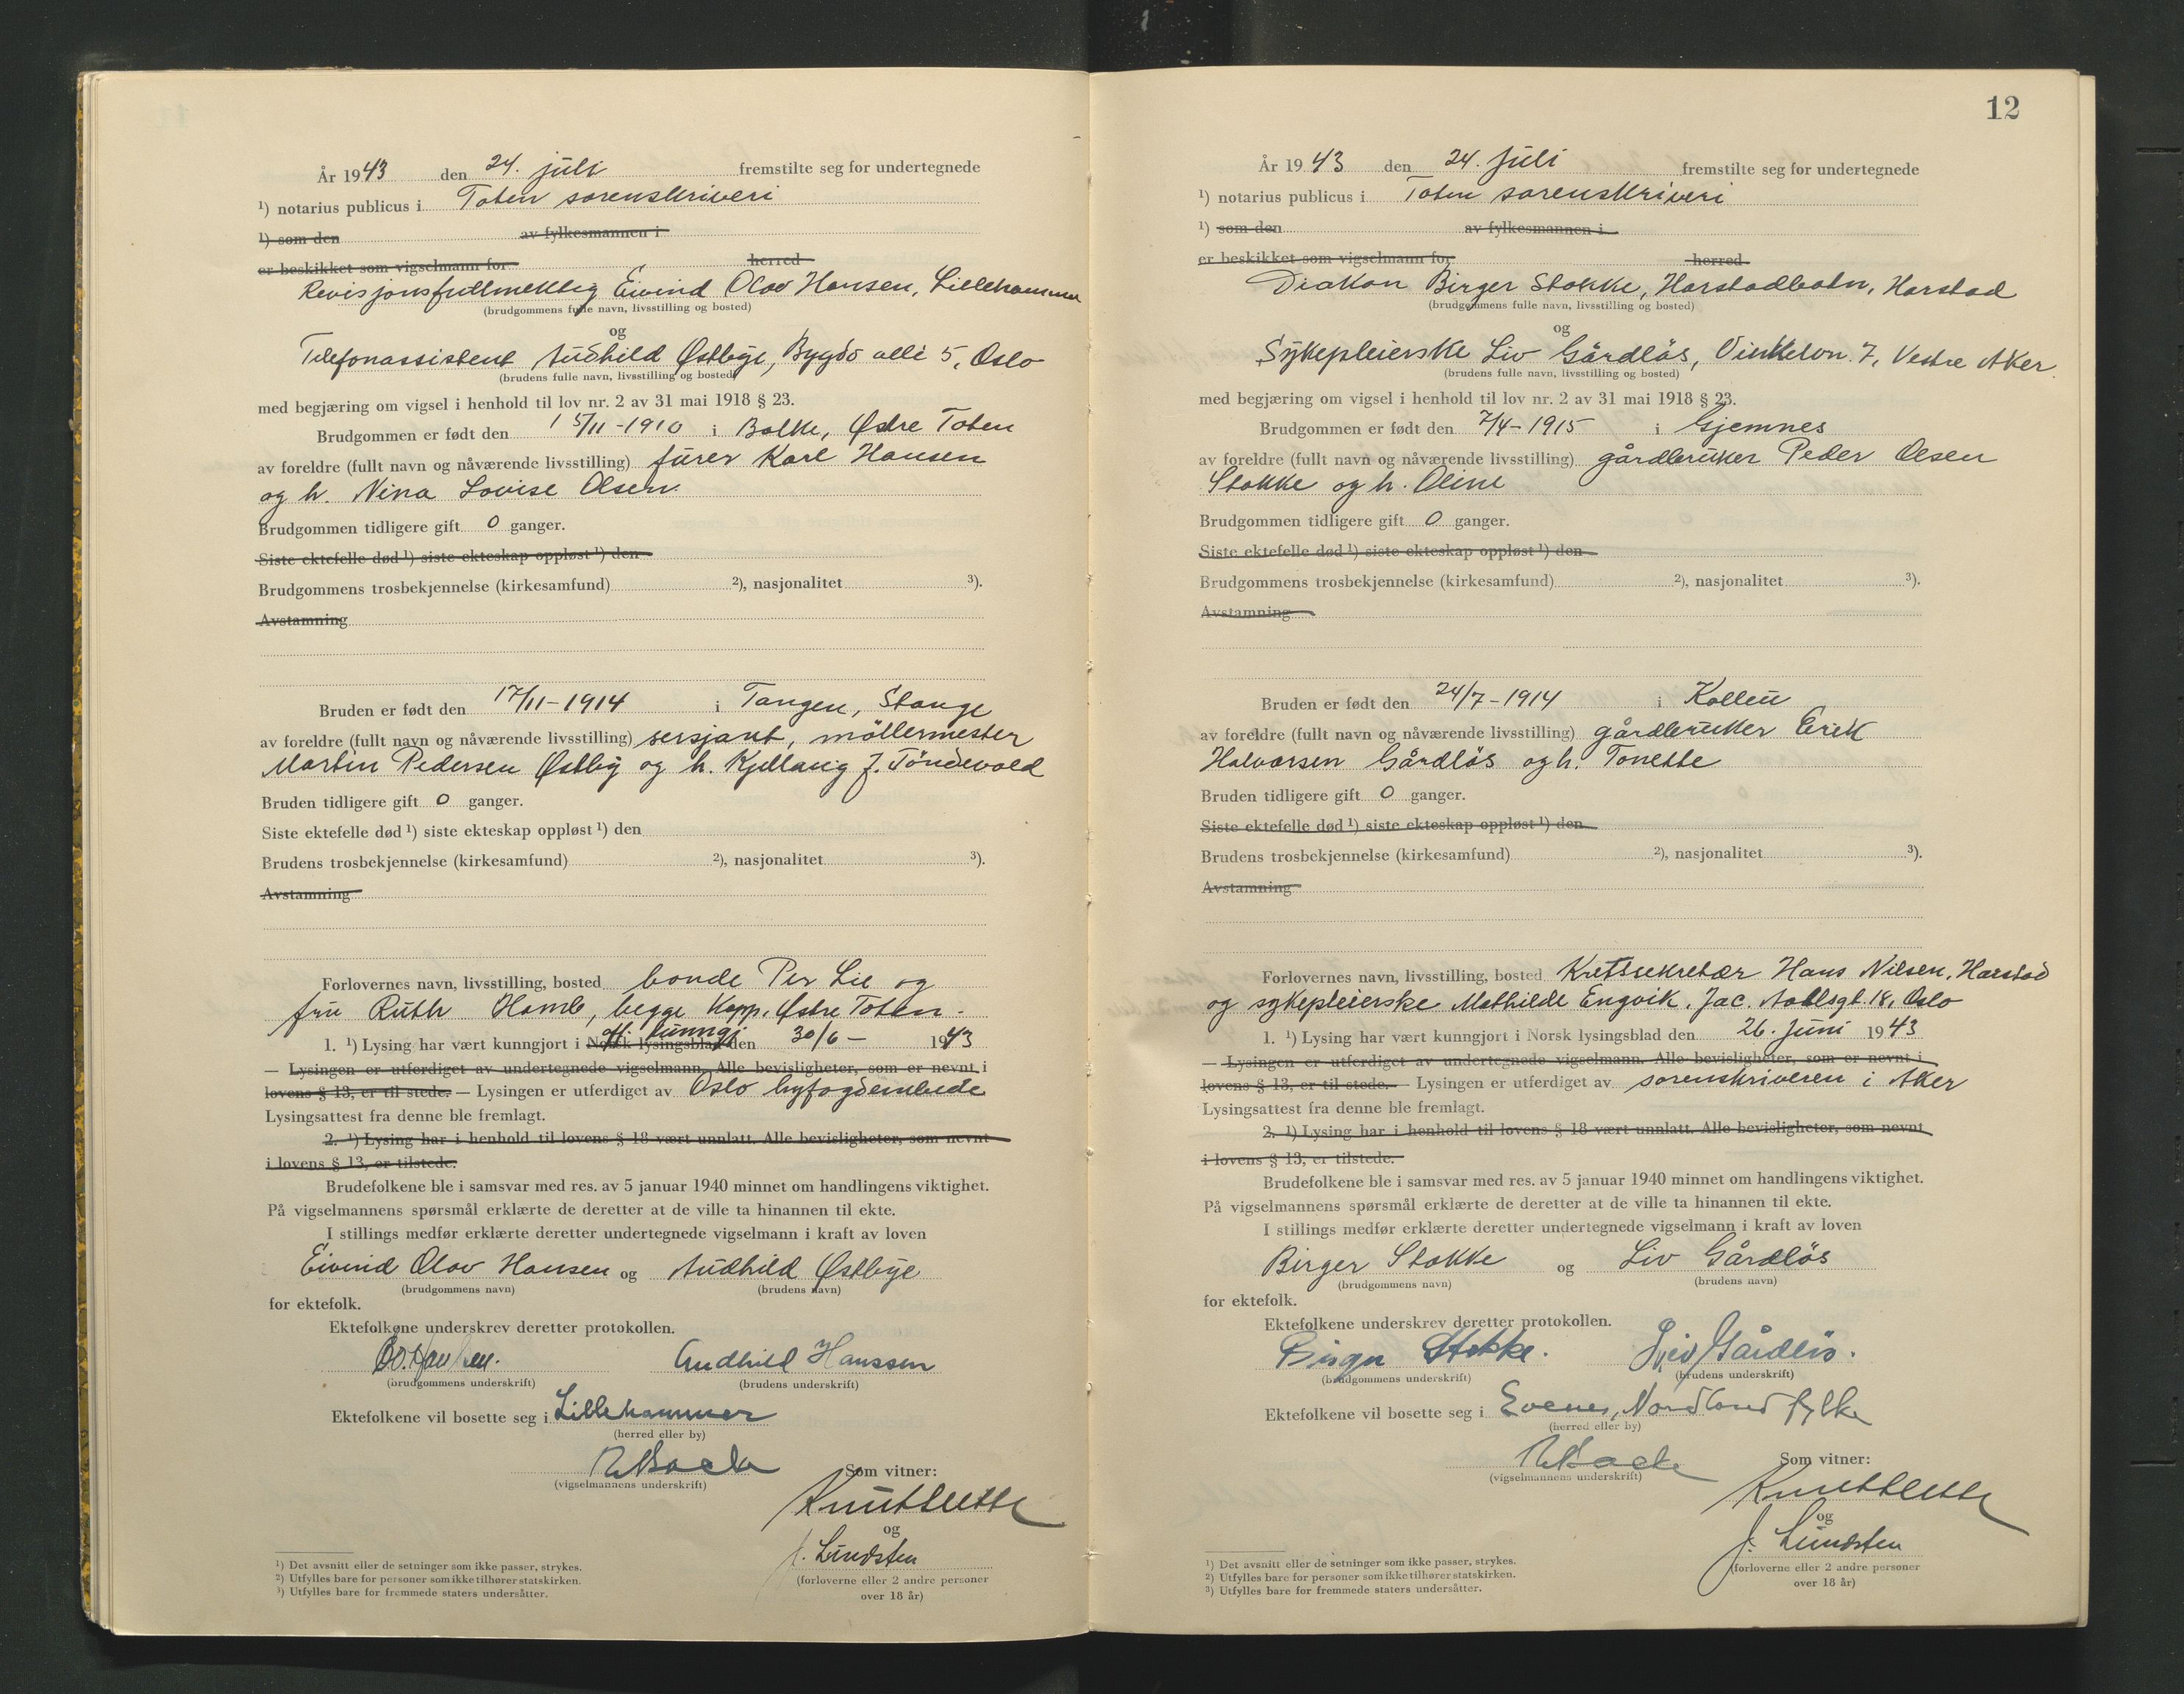 År 1943 den 24. juli fremstilte seg for undertegnede
¹) notarius publicus i Toten sorenskriveri
¹) som den av fylkesmannen i
er beskikket som vigselmann for herred
Revisjonsfullmektig Eivind Olav Hansen, Lillehammer
(brudgommens fulle navn, livsstilling og bosted)
og
Telefonassistent Audhild Østbye, Bygdö allé 5, Oslo
(brudens fulle navn, livsstilling og bosted)
med begjæring om vigsel i henhold til lov nr. 2 av 31 mai 1918 § 23.
Brudgommen er født den 15/11-1910 i Balke, Østre Toten
av foreldre (fullt navn og nåværende livsstilling) furer Karl Hansen
og h. Nina Lovise Olsen.
Brudgommen tidligere gift 0 ganger.
Siste ektefelle død ¹) siste ekteskap oppløst ¹) den
Brudgommens trosbekjennelse (kirkesamfund) ²), nasjonalitet ³).
Avstamning
Bruden er født den 17/11-1914 i Tangen, Stange
av foreldre (fullt navn og nåværende livsstilling) sersjant, möllermester
Martin Pedersen Østby og h. Kjellaug J. Töndevold
Bruden tidligere gift 0 ganger.
Siste ektefelle død ¹) siste ekteskap oppløst ¹) den
Brudens trosbekjennelse (kirkesamfund) ²), nasjonalitet ³).
Avstamning
Forlovernes navn, livsstilling, bosted bonde Per Lie og
fru Ruth Homb, begge Kapp, Østre Toten.
off. kunngj.
1. ¹) Lysing har vært kunngjort i Norsk lysingsblad den 30/6 - 1943
— Lysingen er utferdiget av undertegnede vigselmann. Alle bevisligheter, som er nevnt i
lovens § 13, er til stede. — Lysingen er utferdiget av Oslo byfogdembede
Lysingsattest fra denne ble fremlagt.
2. ¹) Lysing har i henhold til lovens § 18 vært unnlatt. Alle bevisligheter, som nevnt
i lovens § 13, er tilstede.
Brudefolkene ble i samsvar med res. av 5 januar 1940 minnet om handlingens viktighet.
På vigselmannens spørsmål erklærte de deretter at de ville ta hinannen til ekte.
I stillings medfør erklærte deretter undertegnede vigselmann i kraft av loven
Eivind Olav Hansen og Audhild Østbye
(brudgommens navn) (brudens navn)
for ektefolk.
Ektefolkene underskrev deretter protokollen.
Audhild Hanssen
(brudgommens underskrift) (brudens underskrift)
Ektefolkene vil bosette seg i Lillehammer
(herred eller by)
Som vitner:
(vigselmannens underskrift)
og
J. Lundsten
(forloverne eller 2 andre personer
over 18 år)
¹) Det avsnitt eller de setninger som ikke passer, strykes.
²) Utfylles bare for personer som ikke tilhører statskirken.
³) Utfylles bare for fremmede staters undersåtter.
12
År 1943 den 24. juli fremstilte seg for undertegnede
¹) notarius publicus i Toten sorenskriveri
¹) som den av fylkesmannen i
er beskikket som vigselmann for herred
Diakon Birger Stokke, Harstadbotn, Harstad
(brudgommens fulle navn, livsstilling og bosted)
og
Sykepleierske Liv Gårdlös, Vinkelvn. 7, Vestre Aker.
(brudens fulle navn, livsstilling og bosted)
med begjæring om vigsel i henhold til lov nr. 2 av 31 mai 1918 § 23.
Brudgommen er født den 7/4-1915 i Gjemnes
av foreldre (fullt navn og nåværende livsstilling) gårdbruker Peder Olsen
Stokke og h. Oline
Brudgommen tidligere gift 0 ganger.
Siste ektefelle død ¹) siste ekteskap oppløst ¹) den
Brudgommens trosbekjennelse (kirkesamfund) ²), nasjonalitet ³).
Avstamning
Bruden er født den 24/7-1914 i Kolbu
av foreldre (fullt navn og nåværende livsstilling) gårdbruker Erik
Halvorsen Gårdlös og h. Tonette
Bruden tidligere gift 0 ganger.
Siste ektefelle død ¹) siste ekteskap oppløst ¹) den
Brudens trosbekjennelse (kirkesamfund) ²), nasjonalitet ³).
Avstamning
Forlovernes navn, livsstilling, bosted Kretssekretær Hans Nilsen, Harstad
og sykepleierske Mathilde Engvik, Jac. Aallsgt. 18, Oslo
1. ¹) Lysing har vært kunngjort i Norsk lysingsblad den 26. juni 1943
— Lysingen er utferdiget av undertegnede vigselmann. Alle bevisligheter, som er nevnt i
lovens § 13, er til stede. — Lysingen er utferdiget av sorenskriveren i Aker
Lysingsattest fra denne ble fremlagt.
2. ¹) Lysing har i henhold til lovens § 18 vært unnlatt. Alle bevisligheter, som nevnt
i lovens § 13, er tilstede.
Brudefolkene ble i samsvar med res. av 5 januar 1940 minnet om handlingens viktighet.
På vigselmannens spørsmål erklærte de deretter at de ville ta hinannen til ekte.
I stillings medfør erklærte deretter undertegnede vigselmann i kraft av loven
Birger Stokke og Liv Gårdlös
(brudgommens navn) (brudens navn)
for ektefolk.
Ektefolkene underskrev deretter protokollen.
Birger Stokke. Liv Gårdløs.
(brudgommens underskrift) (brudens underskrift)
Ektefolkene vil bosette seg i Evenes, Nordland fylke
(herred eller by)
Som vitner:
(vigselmannens underskrift)
og
J. Lundsten
(forloverne eller 2 andre personer
over 18 år)
¹) Det avsnitt eller de setninger som ikke passer, strykes.
²) Utfylles bare for personer som ikke tilhører statskirken.
³) Utfylles bare for fremmede staters undersåtter.